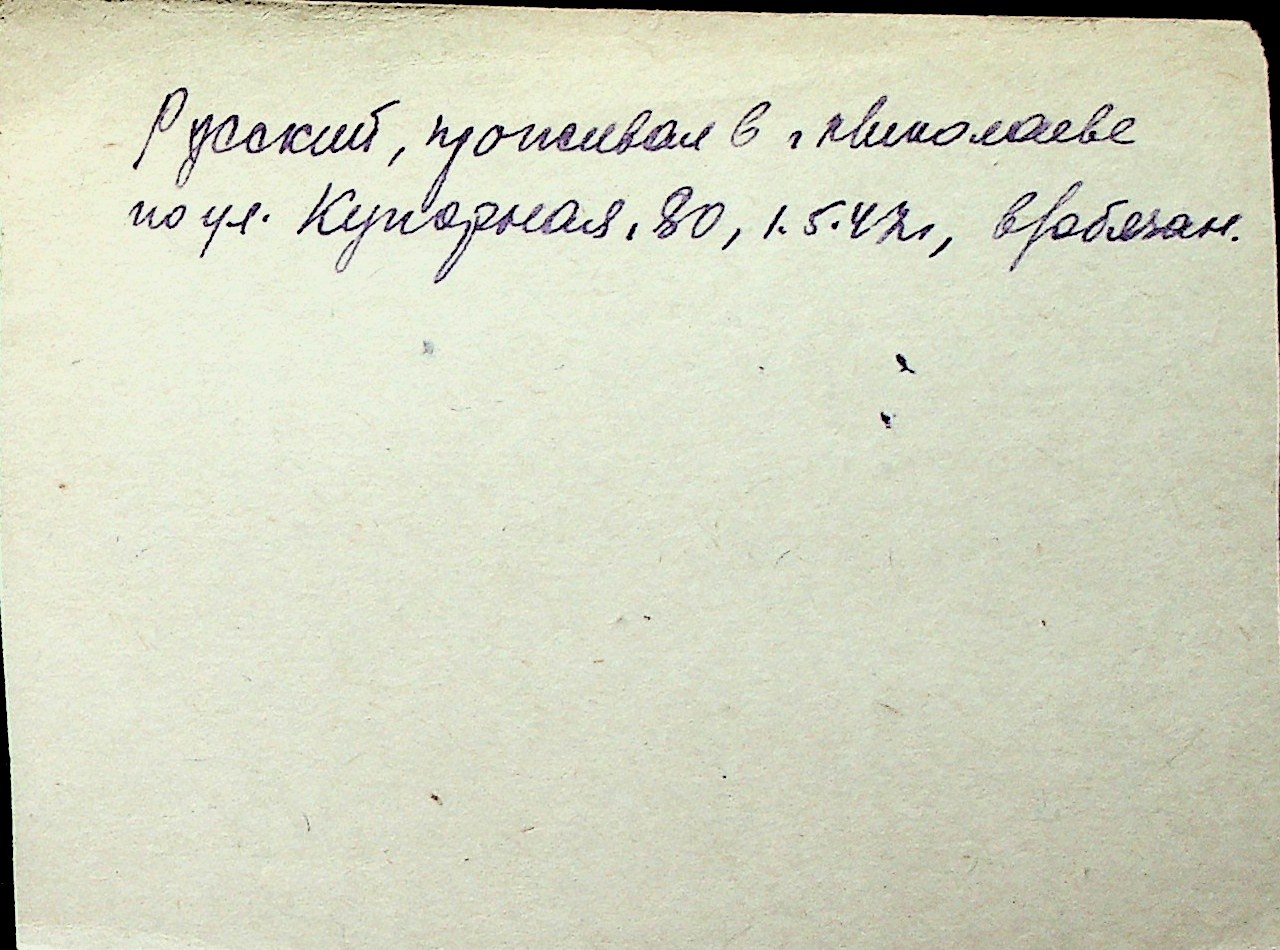 Русский, проживал в г. Николаеве
по ул. Купорная, 80, 1.5.42г,